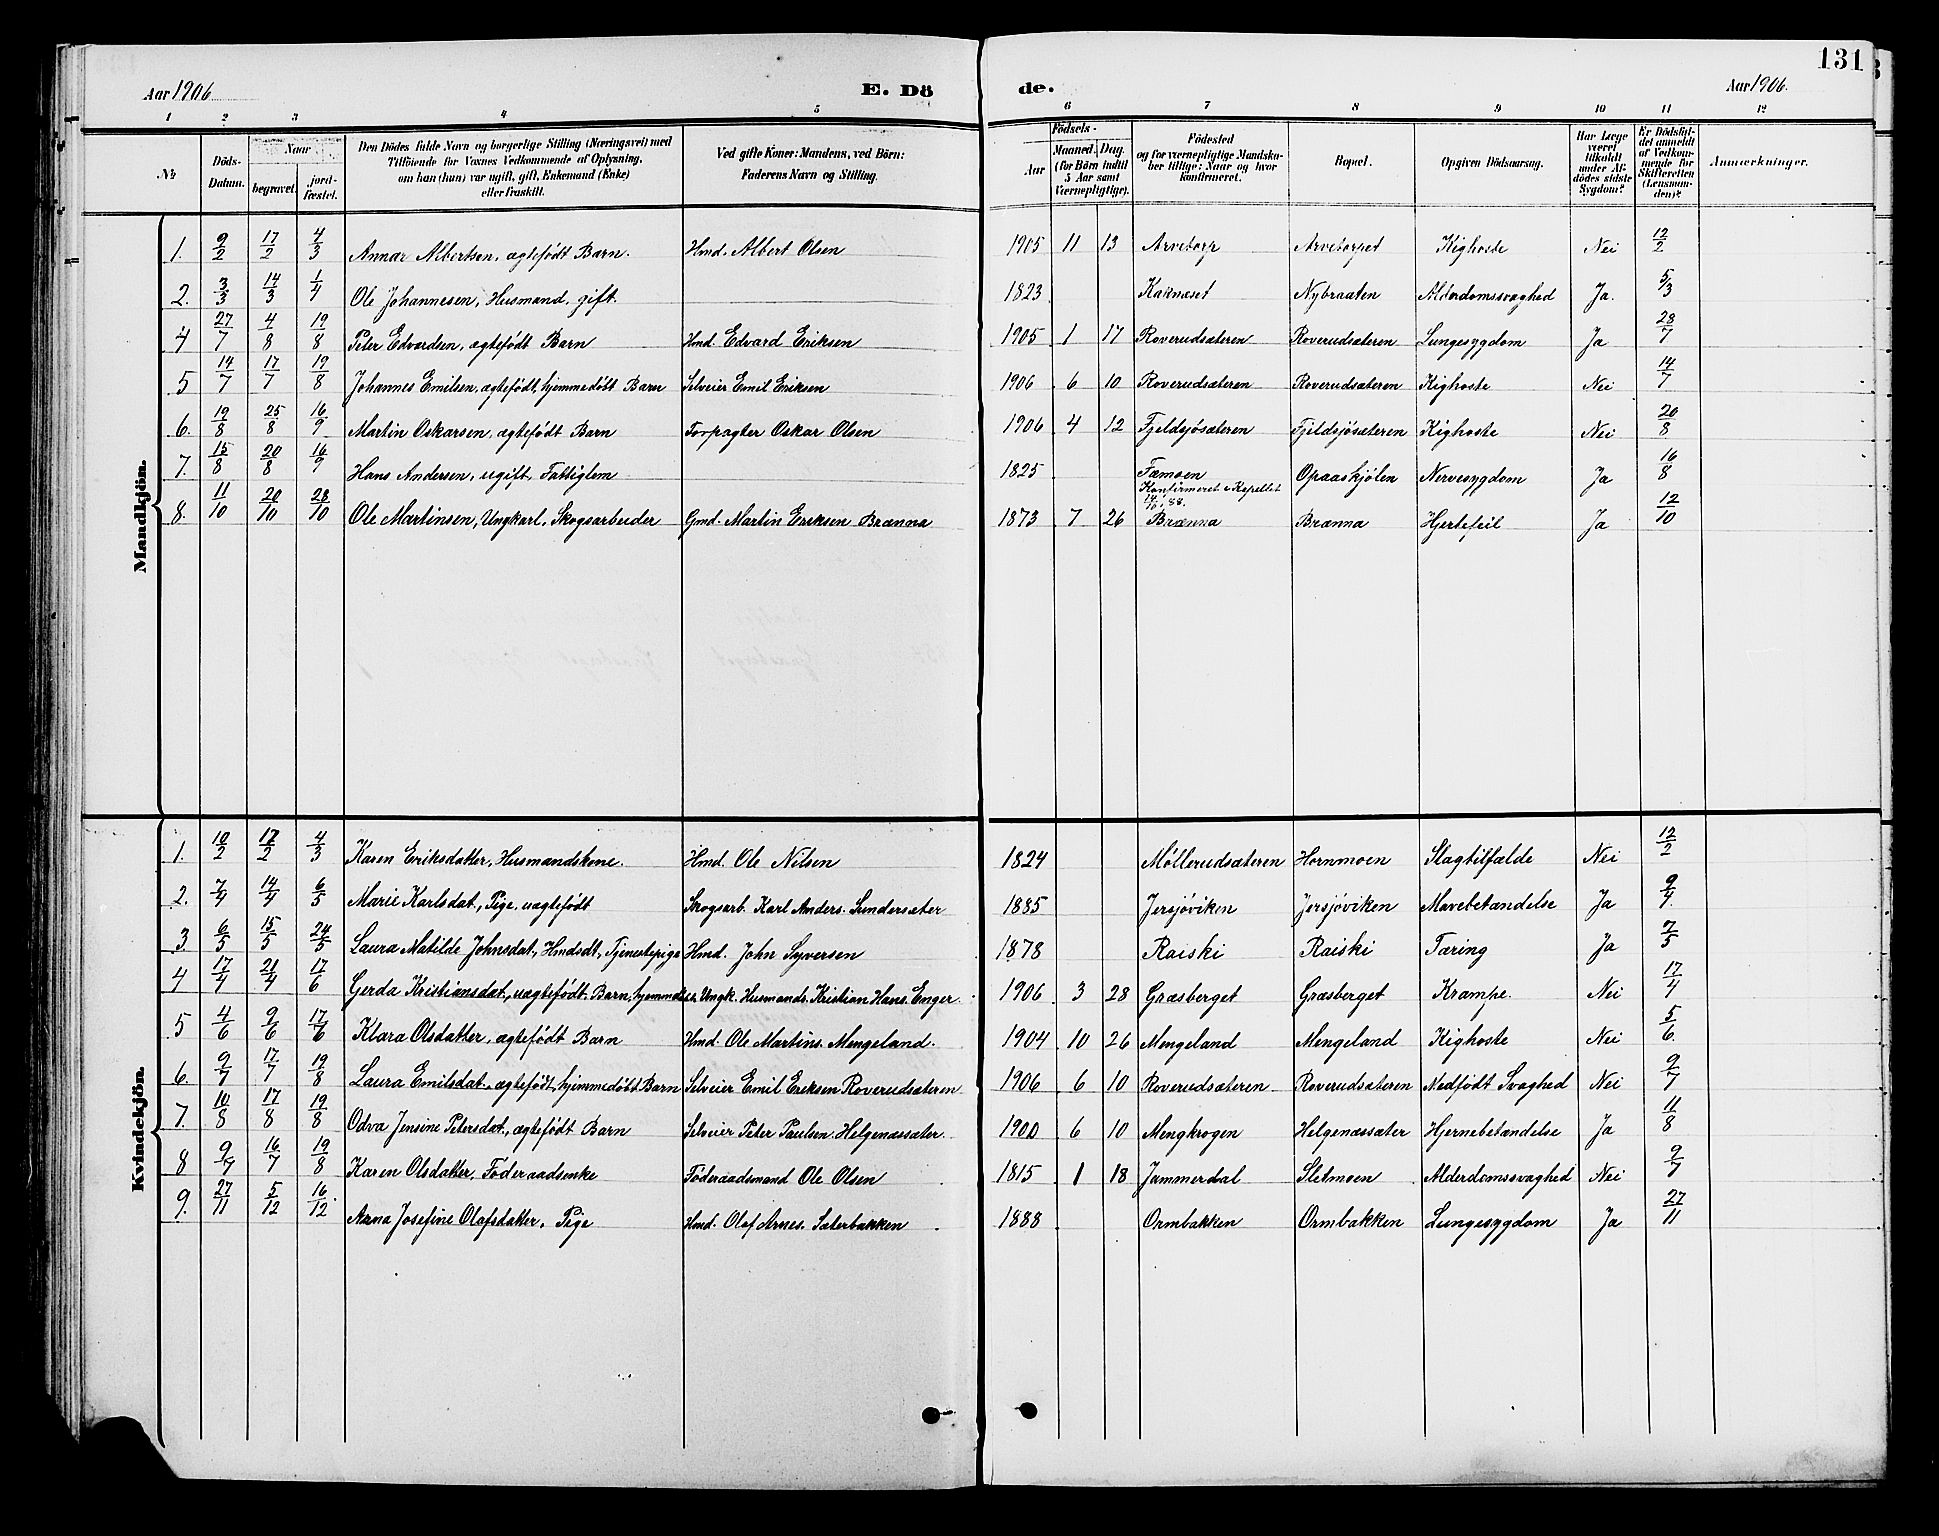 131
Aar 1906 E. Dö de. Aar 1906.
1 2 3 4 5 6 7 8 9 10 11 12
№ Döds-Datum. Naar begravet. jord-fæstet. Den Dödes fulde Navn og borgerlige Stilling (Næringsvei) med Tilföiende for Voxnes Vedkommende af Oplysning. om han (hun) var ugift, gift, Enkemand (Enke) eller fraskilt. Ved gifte Koner: Mandens, ved Börn: Faderens Navn og Stilling. Födsels- Aar Maaned. Dag. (for Börn indtil 5 Aar samt Værnepligtige). Födested og for værnepligtige Mandskaber tillige: Naar og hvor konfirmeret. Bopæl. Opgiven Dödsaarsag. Har Læge været tilkaldt under Afdödes sidste Sygdom? Er Dödsfaldet anmeldt af Vedkommende for Skifteretten (Lensmanden)? Anmærkninger.
Mandkjön.
1. 9/2 17/2 4/3 Annar Albertsen, ægtefødt Barn. Hmd. Albert Olsen 1905 11 13 Arvetorp Arvetorpet Kighoste Nei 12/2
2. 3/3 14/3 1/4 Ole Johannesen, Husmand, gift. 1823 Kaknæset Nybraaten Alderdomssvaghed Ja. 5/3
4 27/7 4/8 19/8 Peter Edvardsen, ægtefødt Barn Hmd. Edvard Eriksen 1905 1 17 Roverudsæteren Roverudsæteren Lungesygdom Ja 28/7
5 14/7 17/7 19/8 Johannes Emilsen, ægtefødt, hjemmedøbt Barn Selveier Emil Eriksen 1906 6 10 Roverudsæteren Roverudsæteren Kighoste Nei 14/7
6. 19/8 25/8 16/9 Martin Oskarsen, ægtefødt Barn Forpagter Oskar Olsen 1906 4 12 Fjeldsjøsæteren Fjeldsjøsæteren Kighoste Nei 20/8
7. 15/8 20/8 16/9 Hans Andersen, ugift, Fattiglem 1825 Fæmoen Opaaskjølen Nervesygdom Ja 16/8
Konfirmeret i Kapellet
14/10 88.
8. 11/10 20/10 28/10 Ole Martinsen, Ungkarl, Skogsarbeider Gmd. Martin Eriksen Brænna 1873 7 26 Brænna Brænna Hjertefeil Ja 12/10
Kvindekjön.
1. 10/2 17/2 4/3 Karen Eriksdatter, Husmandskone. Hmd. Ole Nilsen 1824 Møllerudsæteren Hornmoen Slagtilfælde Nei 12/2
2. 7/4 14/4 6/5 Marie Karlsdat., Pige, uægtefødt Skogsarb. Karl Anders. Sundersæter 1885 Jersjøviken Jersjøviken Mavebetændelse Ja 9/4
3 6/5 15/5 24/5 Laura Matilde Johnsdat., Hmdsdt, Tjenestepige Hmd. John Syversen 1878 Raiski Raiski Tæring Ja 7/5
4 17/4 21/4 17/6 Gerda Kristiansdat., uægtefødt Barn, Ungk. Husmands. Kristian Hans. Enger. 1906 3 28 Græsberget Græsberget Krampe. Nei 17/4
5 4/6 9/6 17/6 Klara Olsdatter, ægtefødt Barn Hmd. Ole Martins. Mengeland. 1904 10 26 Mengeland Mengeland Kighoste Nei 5/6.
6. 9/7 17/7 19/8 Laura Emilsdat., ægtefødt, hjemmedøbt Barn Selveier Emil Eriksen Roverudsæteren. 1906 6 10 Roverudsæteren. Roverudsæteren Medfødt Svaghed Nei 9/7
7. 10/8 17/8 19/8 Odva Jensine Petersdat., ægtefødt Barn Selveier Peter Paulsen. Helgenæssæter. 1900 6 10 Mengkrogen Helgenæssæter Hjernebetændelse Ja 11/8
8 9/7 16/7 19/8 Karen Olsdatter, Føderaadsenke Føderaadsmand Ole Olsen 1815 1 18 Jammerdal Sletmoen Alderdomssvaghed Nei 9/7
9. 27/11 5/12 16/12 Anna Josefine Olafsdatter, Pige Hmd. Olaf Arnes. Sæterbakken 1888 Ormbakken Ormbakken Lungesygdom Ja 27/11